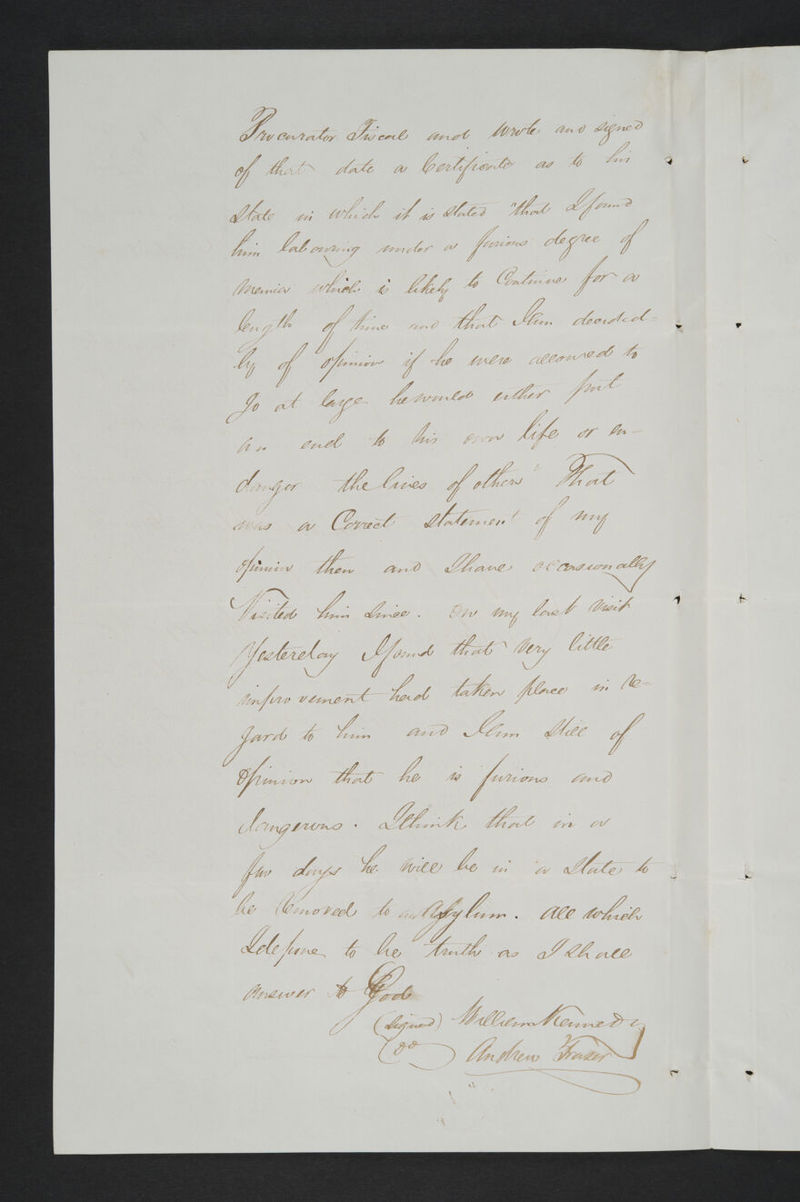 Procurator Fiscal and wrote and signed
of that date a Certificate as to his
State in which it is stated "that I found
him labouring under a furious degree of
mania which is likely to Continue for a
length of time and that I am decided=
ly of opinion if he were allowed to
go at large he would either put
an end to his own life or en-
danger the lives of others" That
was a Correct Statement of my
opinion then and I have occasionally
Visited him since. On my last visit
Yesterday I found that very little
improvement had taken place in re-
gard to him and I am still of
Opinion that he is furious and
dangerous. I think that in a
few days he will be in a State to
be removed to an Asylum. All which
I depone to be truth as I shall
answer to God
(signed) William Kennedy
(Do) Andrew Fraser